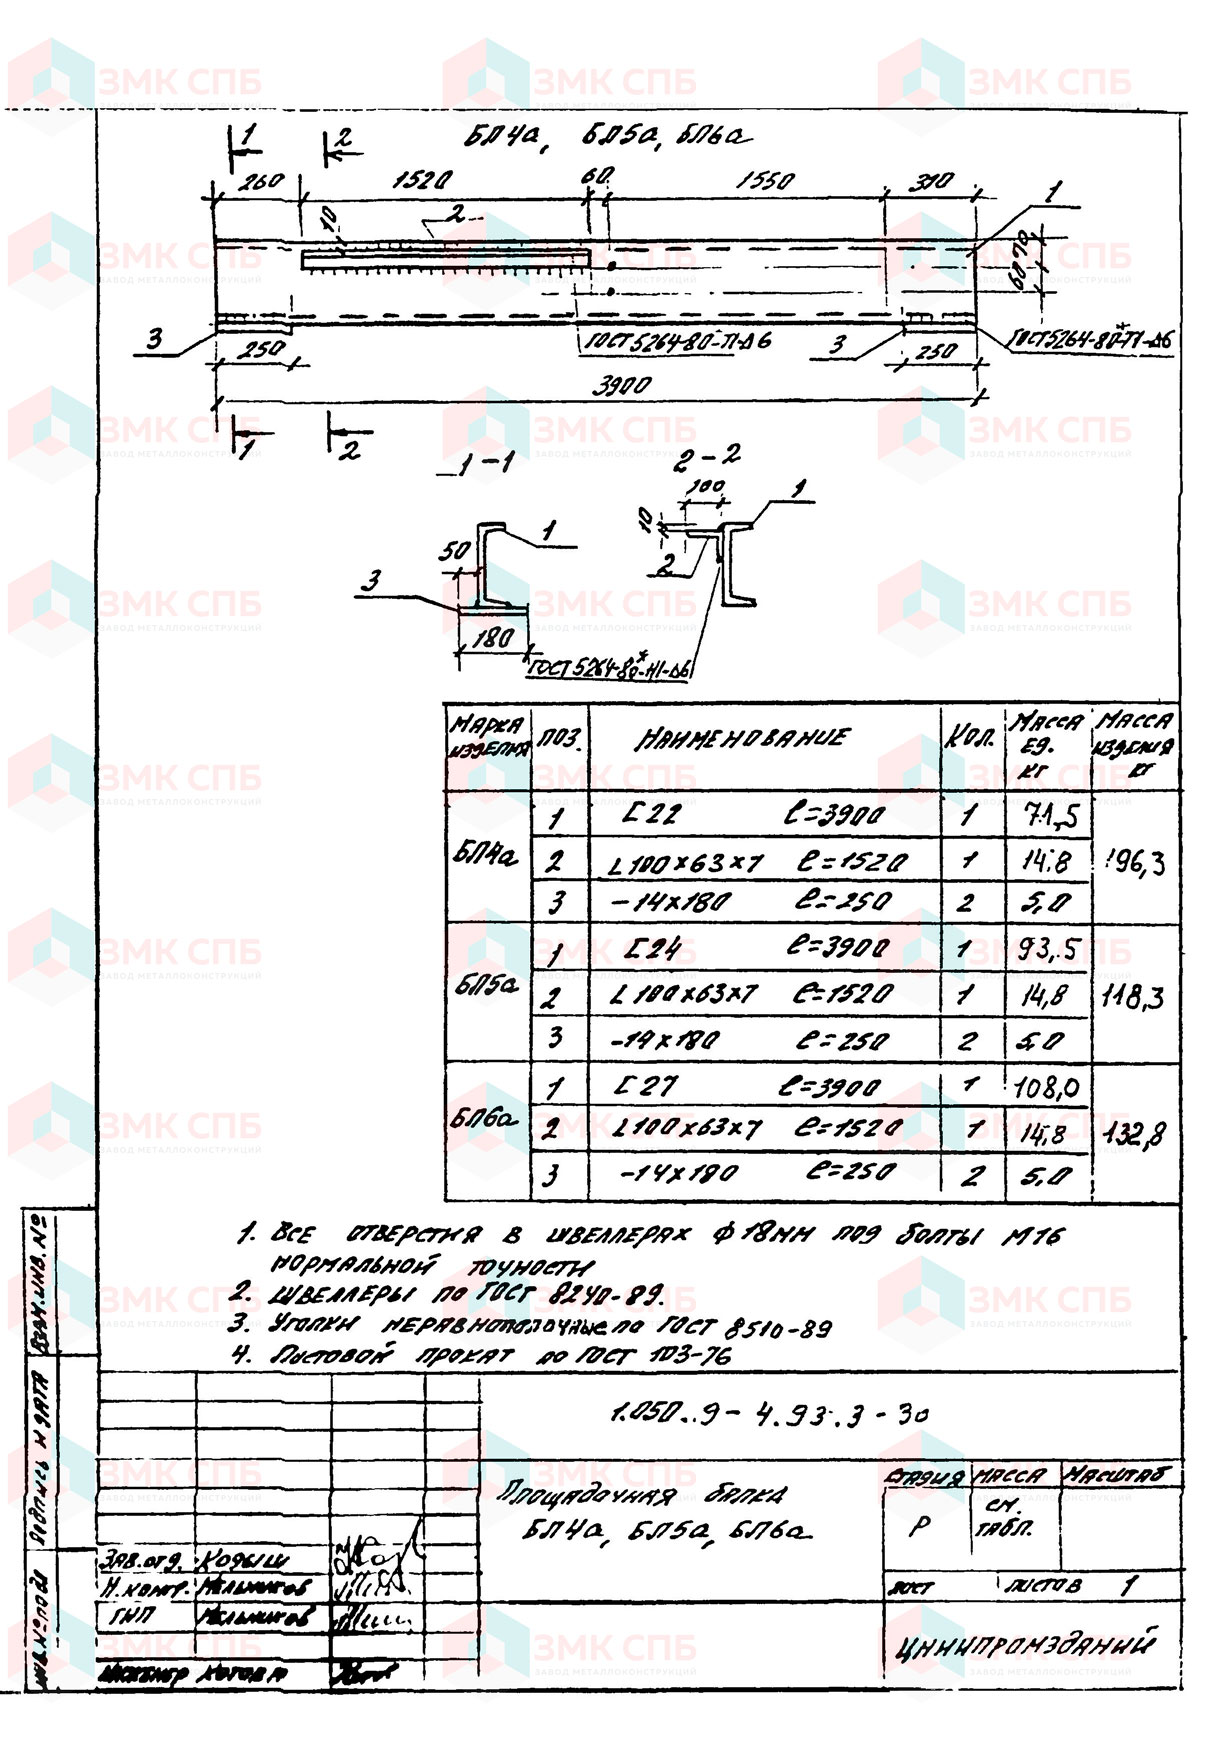 БП4а, БП5а, БП6а
1 2
260 1520 60 1550 310
10 2 1
60 70
3 ГОСТ 5264-80-Т1-Δ6 3 ГОСТ 5264-80*-Т1-Δ6
250 250
3900
1 2
1-1 2-2
100
1
10
1
50
2
3
180
ГОСТ 5264-80*-Н1-Δ6
Марка изделия поз. Наименование Кол. Масса ед. кг Масса изделия кг
БП4а 1 [22 ℓ=3900 1 71,5 96,3
2 L100×63×7 ℓ=1520 1 14.8
3 -14×180 ℓ=250 2 5,0
БП5а 1 [24 ℓ=3900 1 93,5 118,3
2 L100×63×7 ℓ=1520 1 14,8
3 -14×180 ℓ=250 2 5,0
БП6а 1 [27 ℓ=3900 1 108,0 132,8
2 L100×63×7 ℓ=1520 1 14,8
3 -14×180 ℓ=250 2 5,0
1. Все отверстия в швеллерах ф 18мм под болты М16
нормальной точности
2. Швеллеры по ГОСТ 8240-89.
3. Уголки неравнополочные по ГОСТ 8510-89
4. Листовой прокат по ГОСТ 103-76
Взам. инв. №
Подпись и дата
Инв. № подл
1.050.9-4.93.3-30
Площадочная балка
БП4а, БП5а, БП6а
стадия масса масштаб
Р см. табл.
лист листов 1
Зав. отд. Кодыш
Н. контр. Мельников
ГИП Мельников
инженер Котова
ЦНИИПРОМЗДАНИЙ
ЗМК СПБ
ЗАВОД МЕТАЛЛОКОНСТРУКЦИЙ